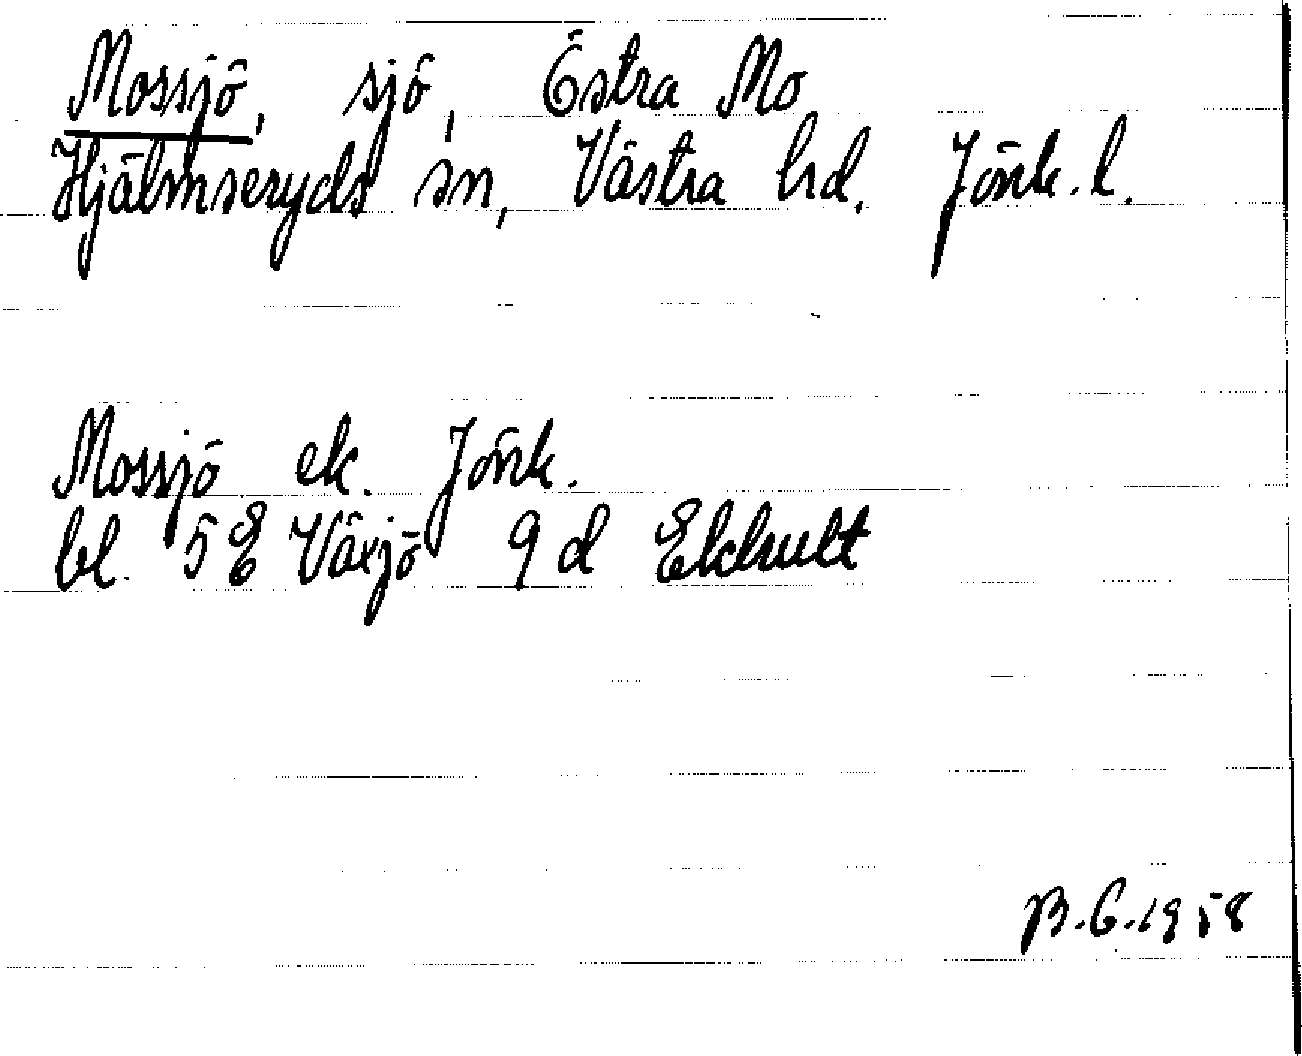 Mossjö, sjö, Östra Mo
Hjälmseryds sn, Västra hd. Jönk. l.
Mossjö ek. Jönk.
bl. 5 E Växjö 9 d Ekhult
B.G. 1958